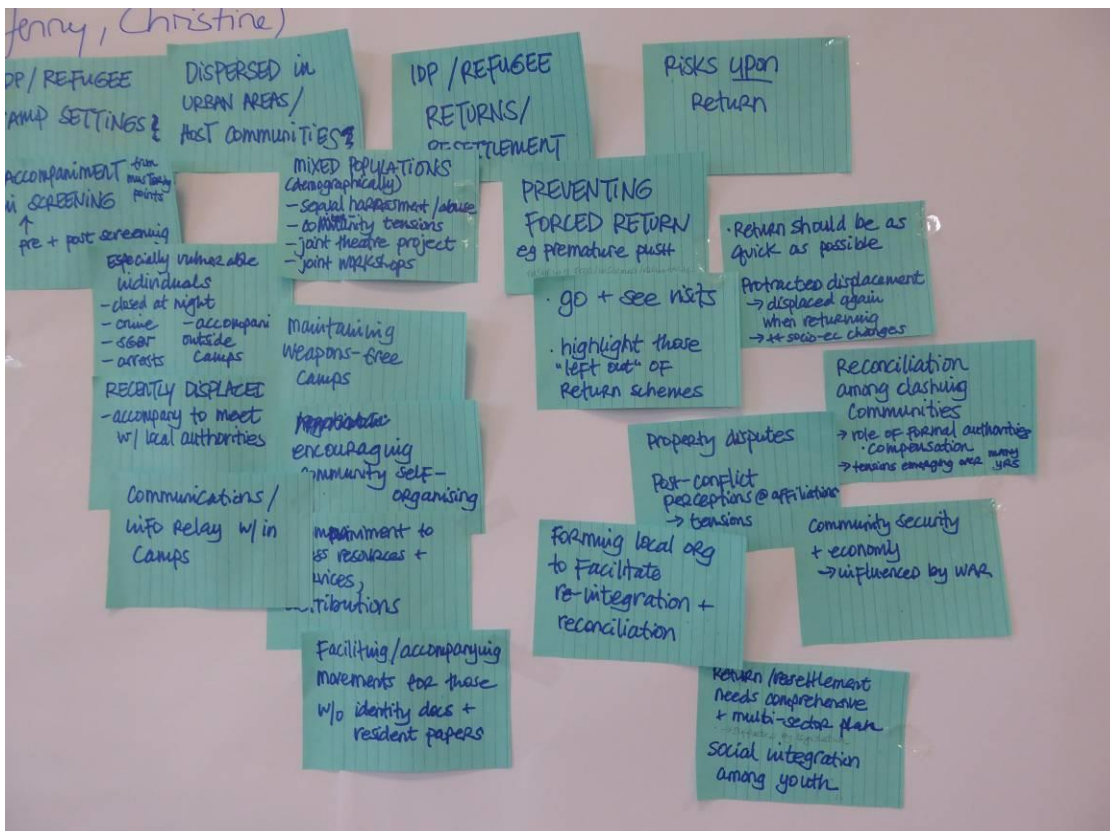 Jenny, Christine)
DP/REFUGEE
AMP SETTINGS
DISPERSED in
URBAN AREAS/
HOST COMMUNITIES
IDP/REFUGEE
RETURNS/
RESETTLEMENT
RISKS upon
Return
ACCOMPANIMENT from
muster points
SCREENING
pre + post screening
MIXED POPULATIONS
(demographically)
- sexual harassment/abuse
- community tensions
- joint theatre project
- joint workshops
PREVENTING
FORCED RETURN
eg premature push
· Return should be as
quick as possible
Protracted displacement
→ displaced again
when returning
→ ++ socio-ec changes
Especially vulnerable
individuals
- closed at night
- crime
- SGBV
- arrests
- accompani
outside
camps
maintaining
weapons-free
camps
· go + see visits
· highlight those
"left out" OF
Return schemes
Reconciliation
among clashing
Communities
→ role of formal authorities
· compensation
→ tensions emerging over many
YRS
RECENTLY DISPLACED
- accompany to meet
w/ local authorities
encouraging
community self-
organising
Property disputes
Post-conflict
perceptions @ affiliations
→ tensions
Communications/
info relay w/in
Camps
mpaniment to
ss resources +
vices,
tributions
FORMING local ORG
to Facilitate
re-integration +
reconciliation
Community security
+ economy
→ influenced by WAR
Faciliting/accompanying
movements for those
w/o identity docs +
resident papers
Return/resettlement
needs comprehensive
+ multi-sector plan
social integration
among youth